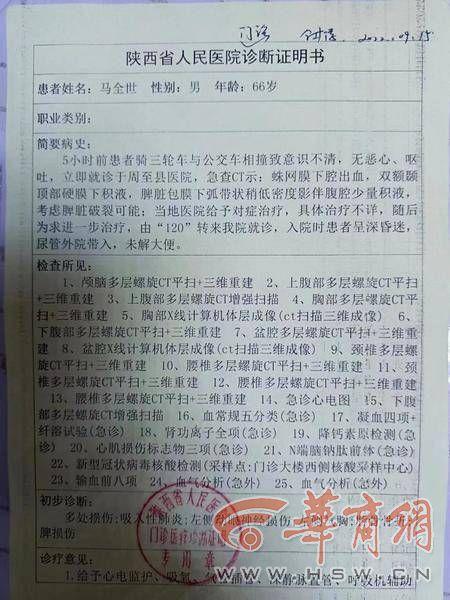 门诊 2022.09.15
陕西省人民医院诊断证明书
患者姓名：马全世 性别：男 年龄：66岁
职业类别：
简要病史：
5小时前患者骑三轮车与公交车相撞致意识不清，无恶心、呕
吐，立即就诊于周至县医院，急查CT示：蛛网膜下腔出血，双额颞
顶部硬膜下积液，脾脏包膜下弧带状稍低密度影伴腹腔少量积液，
考虑脾脏破裂可能；当地医院给予对症治疗，具体治疗不详，随后
为求进一步治疗，由“120”转来我院就诊，入院时患者呈深昏迷，
尿管外院带入，未解大便。
检查所见：
1、颅脑多层螺旋CT平扫+三维重建 2、上腹部多层螺旋CT平扫
+三维重建 3、上腹部多层螺旋CT增强扫描 4、胸部多层螺旋CT平
扫+三维重建 5、胸部X线计算机体层成像(ct扫描三维成像) 6、
下腹部多层螺旋CT平扫+三维重建 7、盆腔多层螺旋CT平扫+三维重
建 8、盆腔X线计算机体层成像(ct扫描三维成像) 9、颈椎多层螺
旋CT平扫+三维重建 10、腰椎多层螺旋CT平扫+三维重建 11、颈
椎多层螺旋CT平扫+三维重建 12、腰椎多层螺旋CT平扫+三维重建
13、腰椎多层螺旋CT平扫+三维重建 14、急诊心电图 15、下腹
部多层螺旋CT增强扫描 16、血常规五分类(急诊) 17、凝血四项+
纤溶试验(急诊) 18、肾功离子全项(急诊) 19、降钙素原检测(急
诊) 20、心肌损伤标志物三项(急诊) 21、N端脑钠肽前体(急诊)
22、新型冠状病毒核酸检测(采样点:门诊大楼西侧核酸采样中心)
23、输血前八项 24、血气分析(急外) 25、血气分析(急外)
初步诊断：
多处损伤;吸入性肺炎;左侧动眼神经损伤;左侧气胸;
脾损伤
诊疗意见：
1.给予心电监护、吸氧、气管插管、深静脉置管、呼吸机辅助
陕西省人民医院
门诊医疗诊断证明
专用章
华商网
WWW.HSW.CN